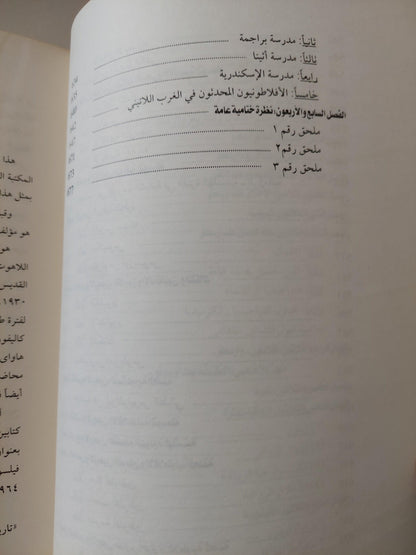 ثانياً: مدرسة براجمة
ثالثاً: مدرسة أثينا
رابعاً: مدرسة الإسكندرية
خامساً: الأفلاطونيون المحدثون في الغرب اللاتيني
الفصل السابع والأربعون: نظرة ختامية عامة
ملحق رقم ١
ملحق رقم ٢
ملحق رقم ٣
٦٧٧
هذا
المكتبة ا
بمثل هذا
وقب
هو مؤلف
هو
اللاهوت
القديس
١٩٣٠
لفترة ط
كاليفور
هاواى
محاض
أيضاً
كتابين
بعنوان
فيلس
٩٦٤
«تاري